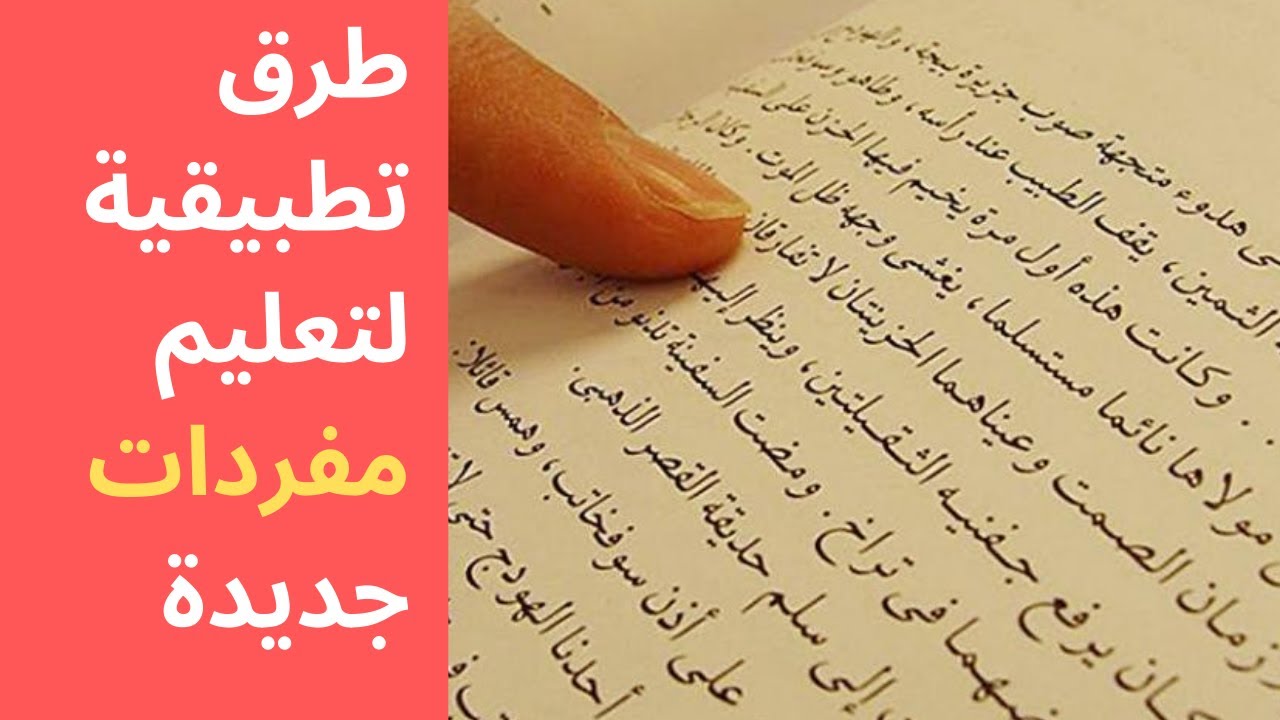 طرق
تطبيقية
لتعليم
مفردات
جديدة
هدوء متجهة صوب جزيرة بيجة، والهودج
الثمين، يقف الطبيب عند رأسه، وطاهو وسوفخاتب
.. وكانت هذه أول مرة يخيم فيها الحزن على السفينة
مولاها نائما مستسلما، يغشى وجهه ظل الموت. وكان
زمان الصمت وعيناهما الحزينتان لا تفارقان
كان يرفع جفنيه الثقيلتين، وينظر إليهما
فى تراخ. ومضت السفينة تدنو من
إلى سلم حديقة القصر الذهبى.
على أذن سوفخاتب، وهمس قائلا:
أحدنا الهودج حتى لا